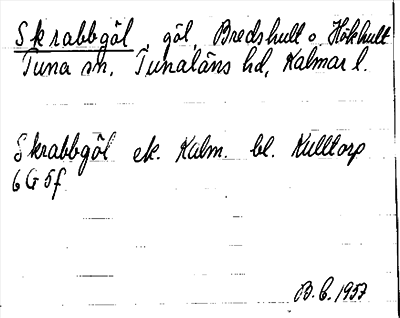 Skrabbgöl, göl, Bredshult o. Hökhult
Tuna sn, Tunaläns hd, Kalmar l.
Skrabbgöl ek. Kalm. bl. Kulltorp
6G5f
B.C. 1957